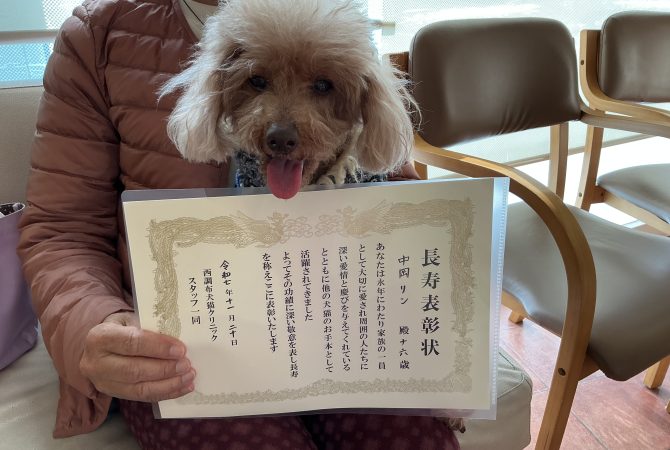 長寿表彰状
中岡リン 殿 十六歳
あなたは永年にわたり家族の一員
として大切に愛され周囲の人たちに
深い愛情と慶びを与えてくれている
とともに他の犬猫のお手本として
活躍されてきました
よってその功績に深い敬意を表し長寿
を称えここに表彰いたします
令和七年十一月二十日
西調布犬猫クリニック
スタッフ一同